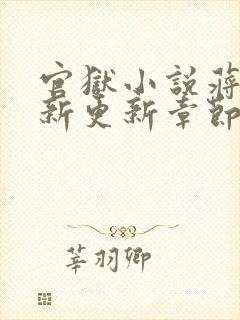 官獄小說蔣
新更新章節
莘羽卿